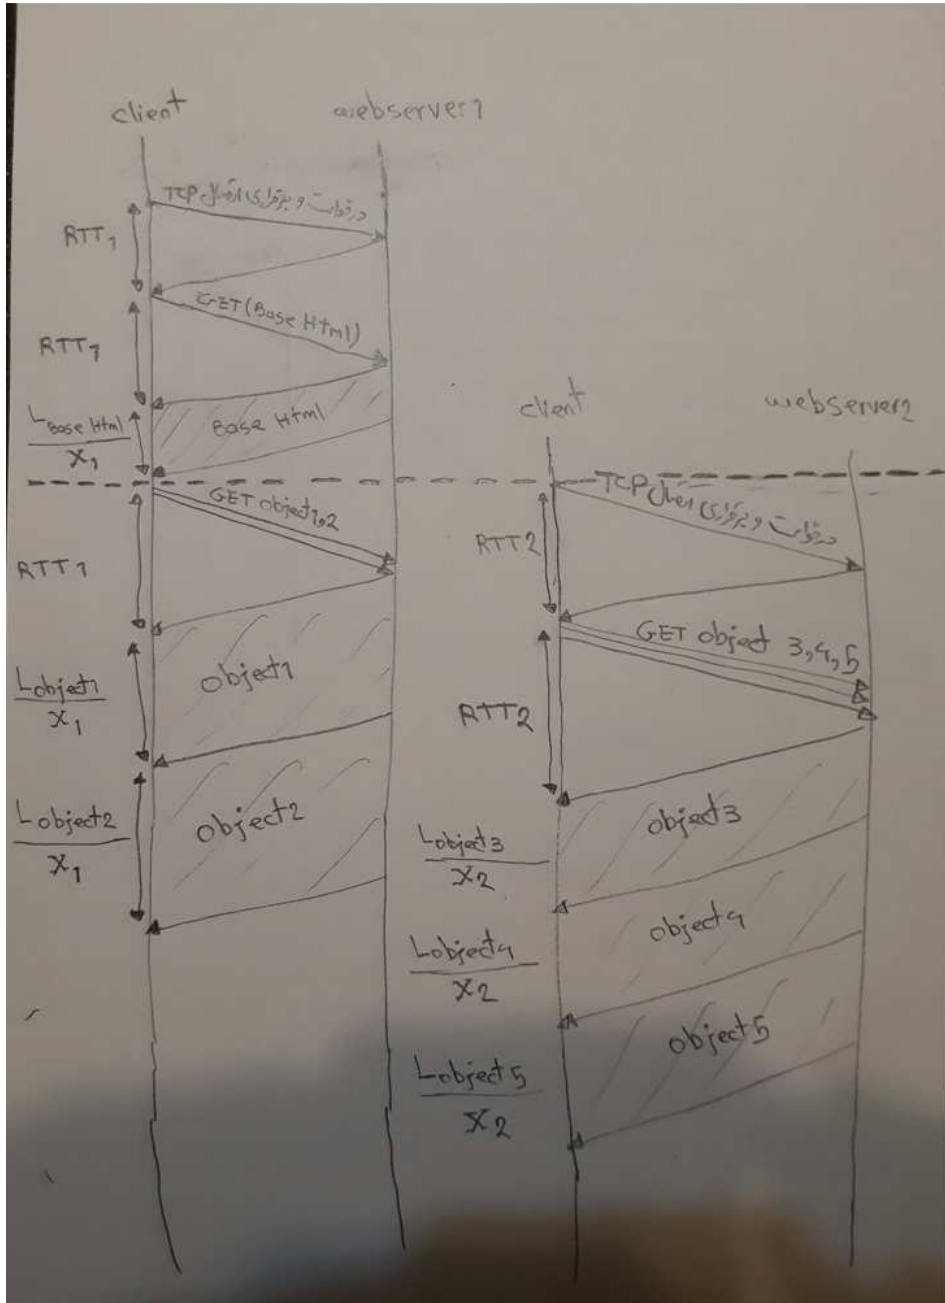 client
webserver1
درخواست و برقراری اتصال TCP
RTT1
GET (Base Html)
RTT1
Base Html
LBase Html
X1
GET object1,2
RTT1
object1
Lobject1
X1
object2
Lobject2
X1
client
webserver2
درخواست و برقراری اتصال TCP
RTT2
GET object 3,4,5
RTT2
object3
Lobject3
X2
object4
Lobject4
X2
object5
Lobject5
X2